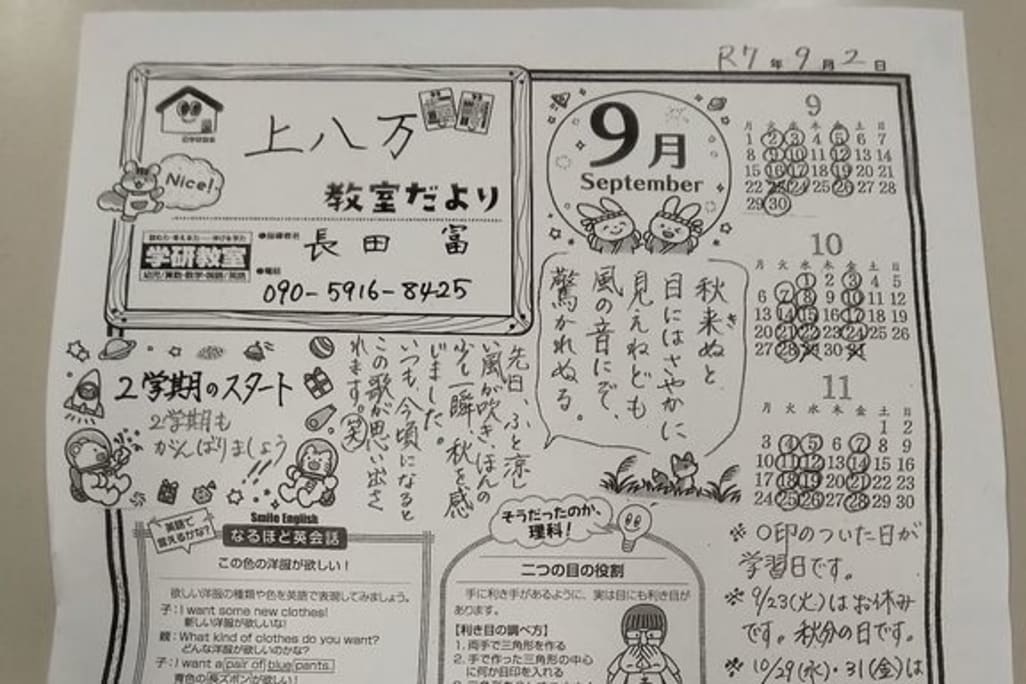 R7年9月2日
上八万
教室だより
Nice!
学研教室
幼児/算数・数学・国語/英語
●指導者名
長田 富
●電話
090-5916-8425
9月
September
秋来ぬと
き
目にはさやかに
見えねども
風の音にぞ
驚かれぬる。
9
月 火 水 木 金 土 日
1 2 3 4 5 6 7
8 9 10 11 12 13 14
15 16 17 18 19 20 21
22 23 24 25 26 27 28
29 30
10
月 火 水 木 金 土 日
1 2 3 4 5
6 7 8 9 10 11 12
13 14 15 16 17 18 19
20 21 22 23 24 25 26
27 28 29 30 31
11
月 火 水 木 金 土 日
1 2
3 4 5 6 7 8 9
10 11 12 13 14 15 16
17 18 19 20 21 22 23
24 25 26 27 28 29 30
※〇印のついた日が
学習日です。
※9/23(火)はお休み
です。秋分の日です。
※10/29(水)・31(金)は
2学期のスタート
2学期も
がんばりましょう
先日、ふと涼し
い風が吹き、ほんの
少々一瞬、秋を感
じました。
いつも、今頃になると
この歌が思い出さ
れます。笑
英語で
言えるかな?
Smile English
なるほど英会話
この色の洋服が欲しい!
欲しい洋服の種類や色を英語で表現してみましょう。
子:I want some new clothes!
新しい洋服が欲しいな!
親:What kind of clothes do you want?
どんな洋服が欲しいのかな?
子:I want a pair of blue pants.
青色の長ズボンが欲しい!
そうだったのか、
理科!
二つの目の役割
手に利き手があるように、実は目にも利き目が
あります。
【利き目の調べ方】
1. 両手で三角形を作る
2. 手で作った三角形の中心
に何か目印を入れる